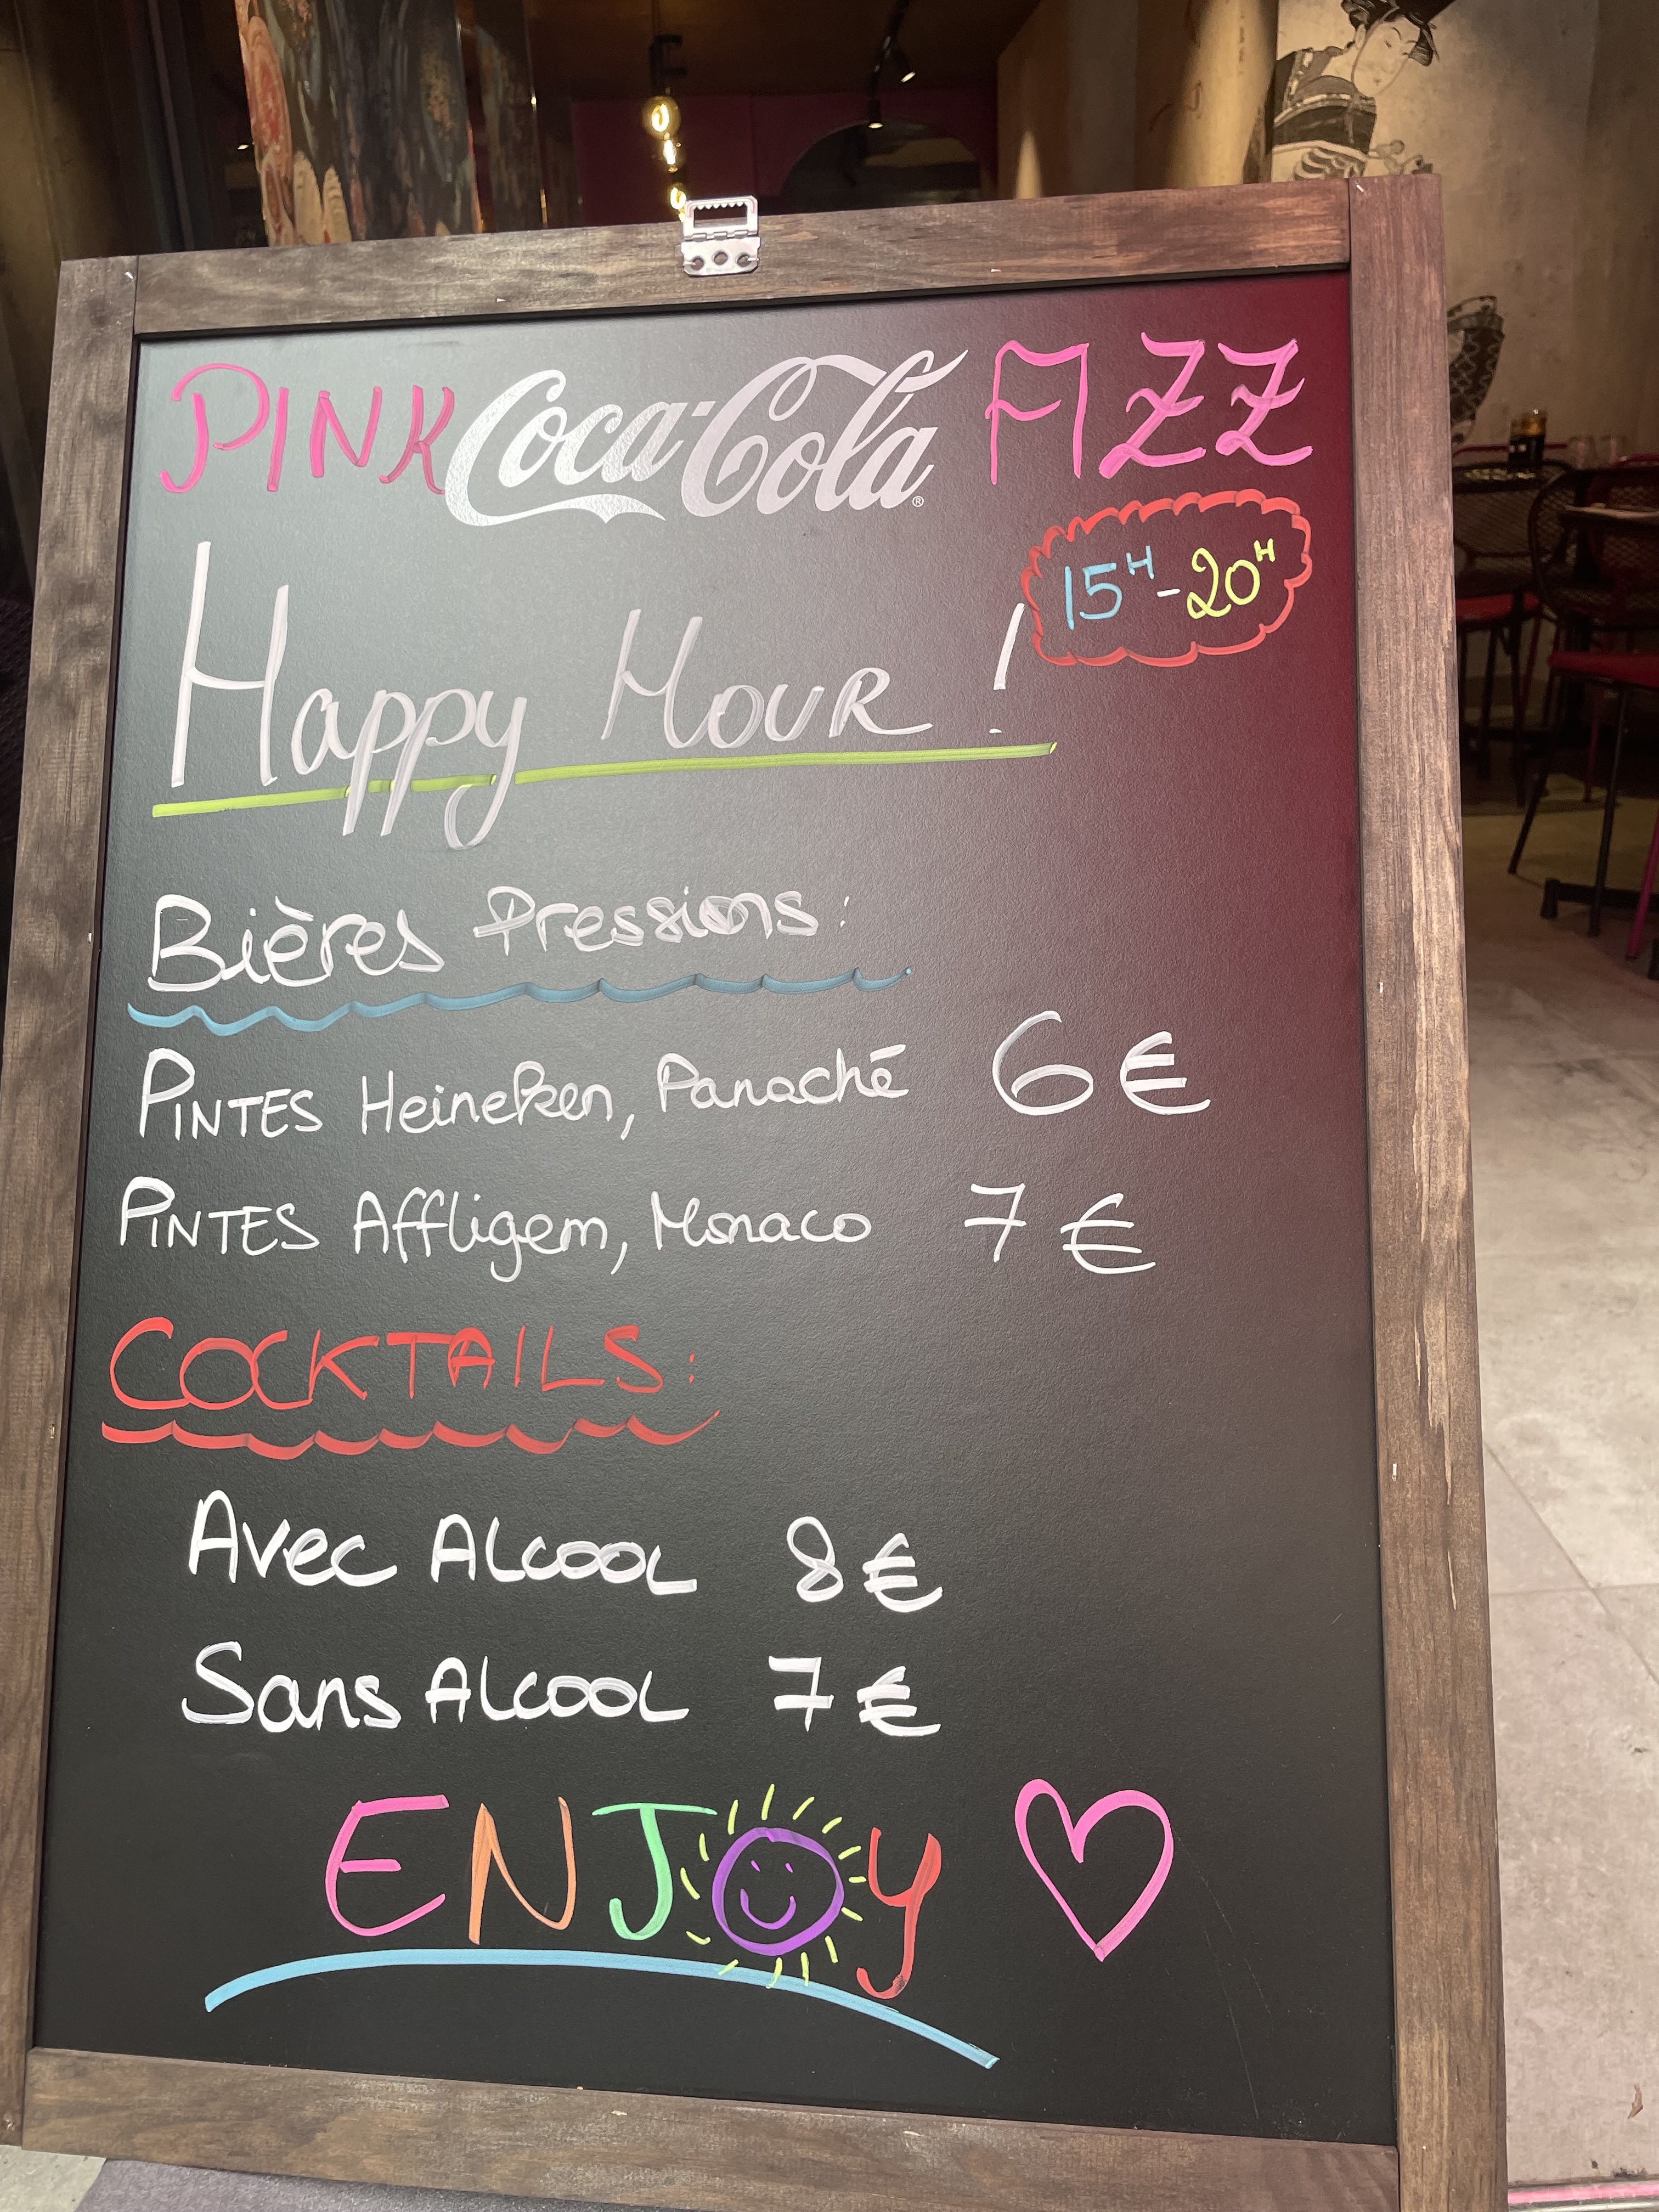 PINK Coca-Cola® FIZZ
15H-20H
Happy HOUR !
Bières Pressions:
PINTES Heineken, Panaché 6€
PINTES Affligem, Monaco 7€
COCKTAILS:
Avec Alcool 8€
Sans Alcool 7€
ENJOY